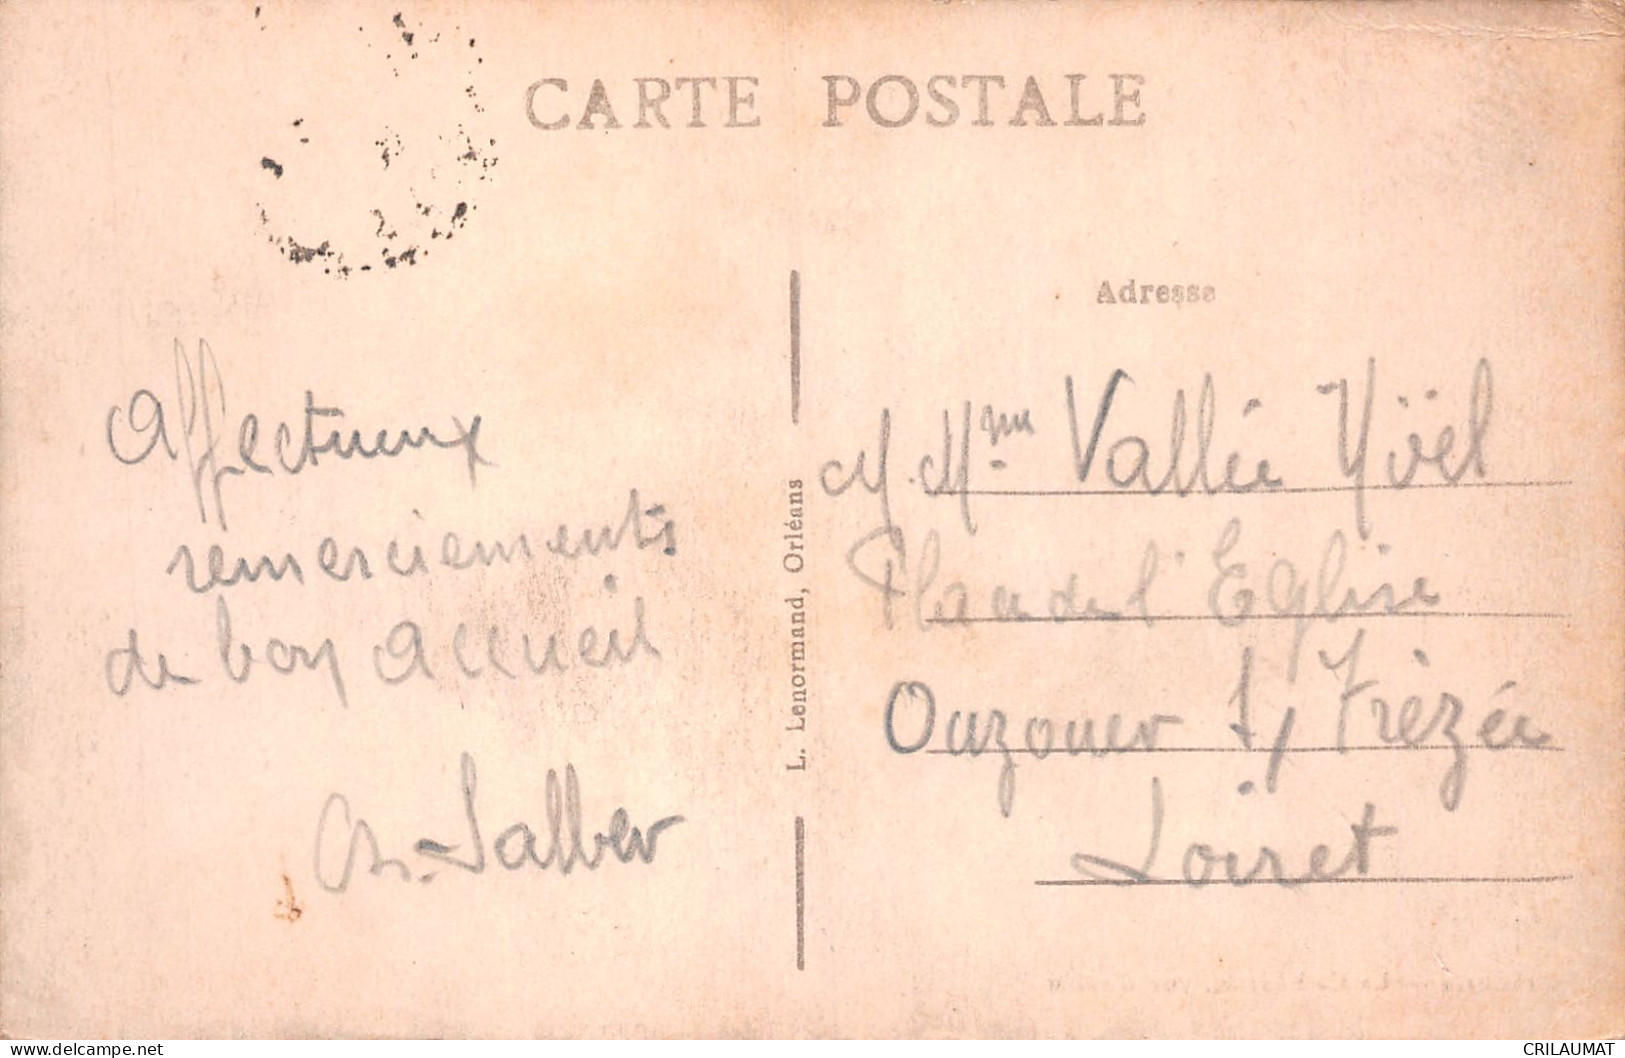 CARTE POSTALE
Adresse
Affectueux
remerciements
de bon accueil
L. Lenormand, Orléans
M. Mme Vallée
Place de l'Eglise
Ouzouer s/ Trézée
Loiret
www.delcampe.net
CRILAUMAT